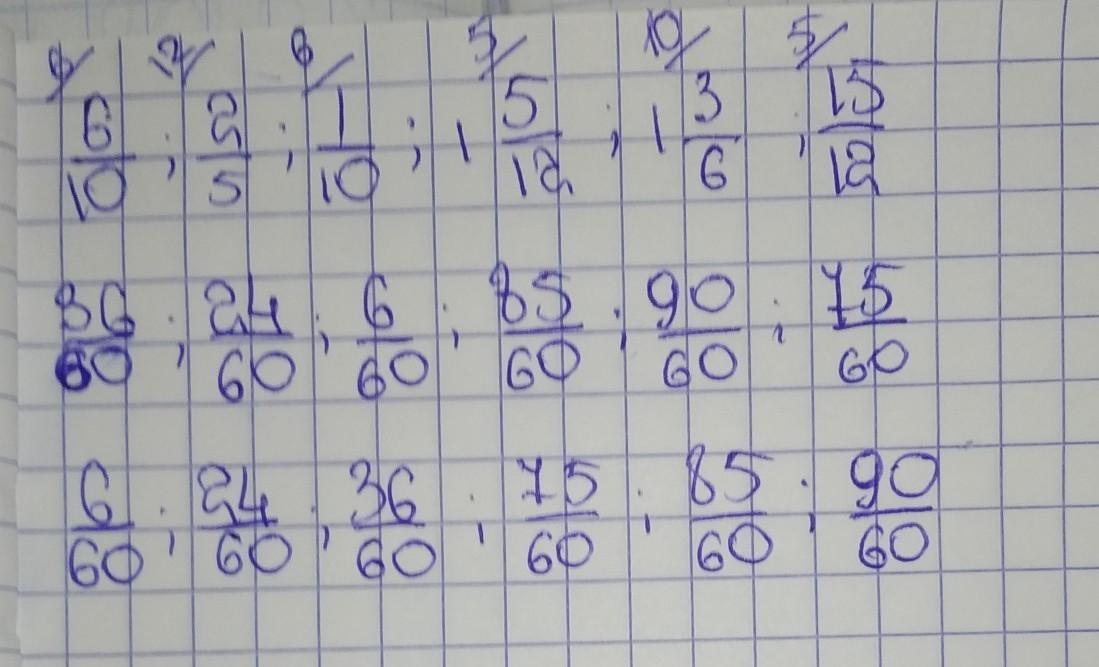 6/ 12/ 6/ 5/ 10/ 5/
6/10 ; 2/5 ; 1/10 ; 1 5/12 ; 1 3/6 ; 15/12
36/60 ; 24/60 ; 6/60 ; 85/60 ; 90/60 ; 75/60
6/60 ; 24/60 ; 36/60 ; 75/60 ; 85/60 ; 90/60